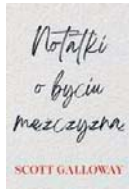 Notatki
o byciu
mężczyzną
SCOTT GALLOWAY